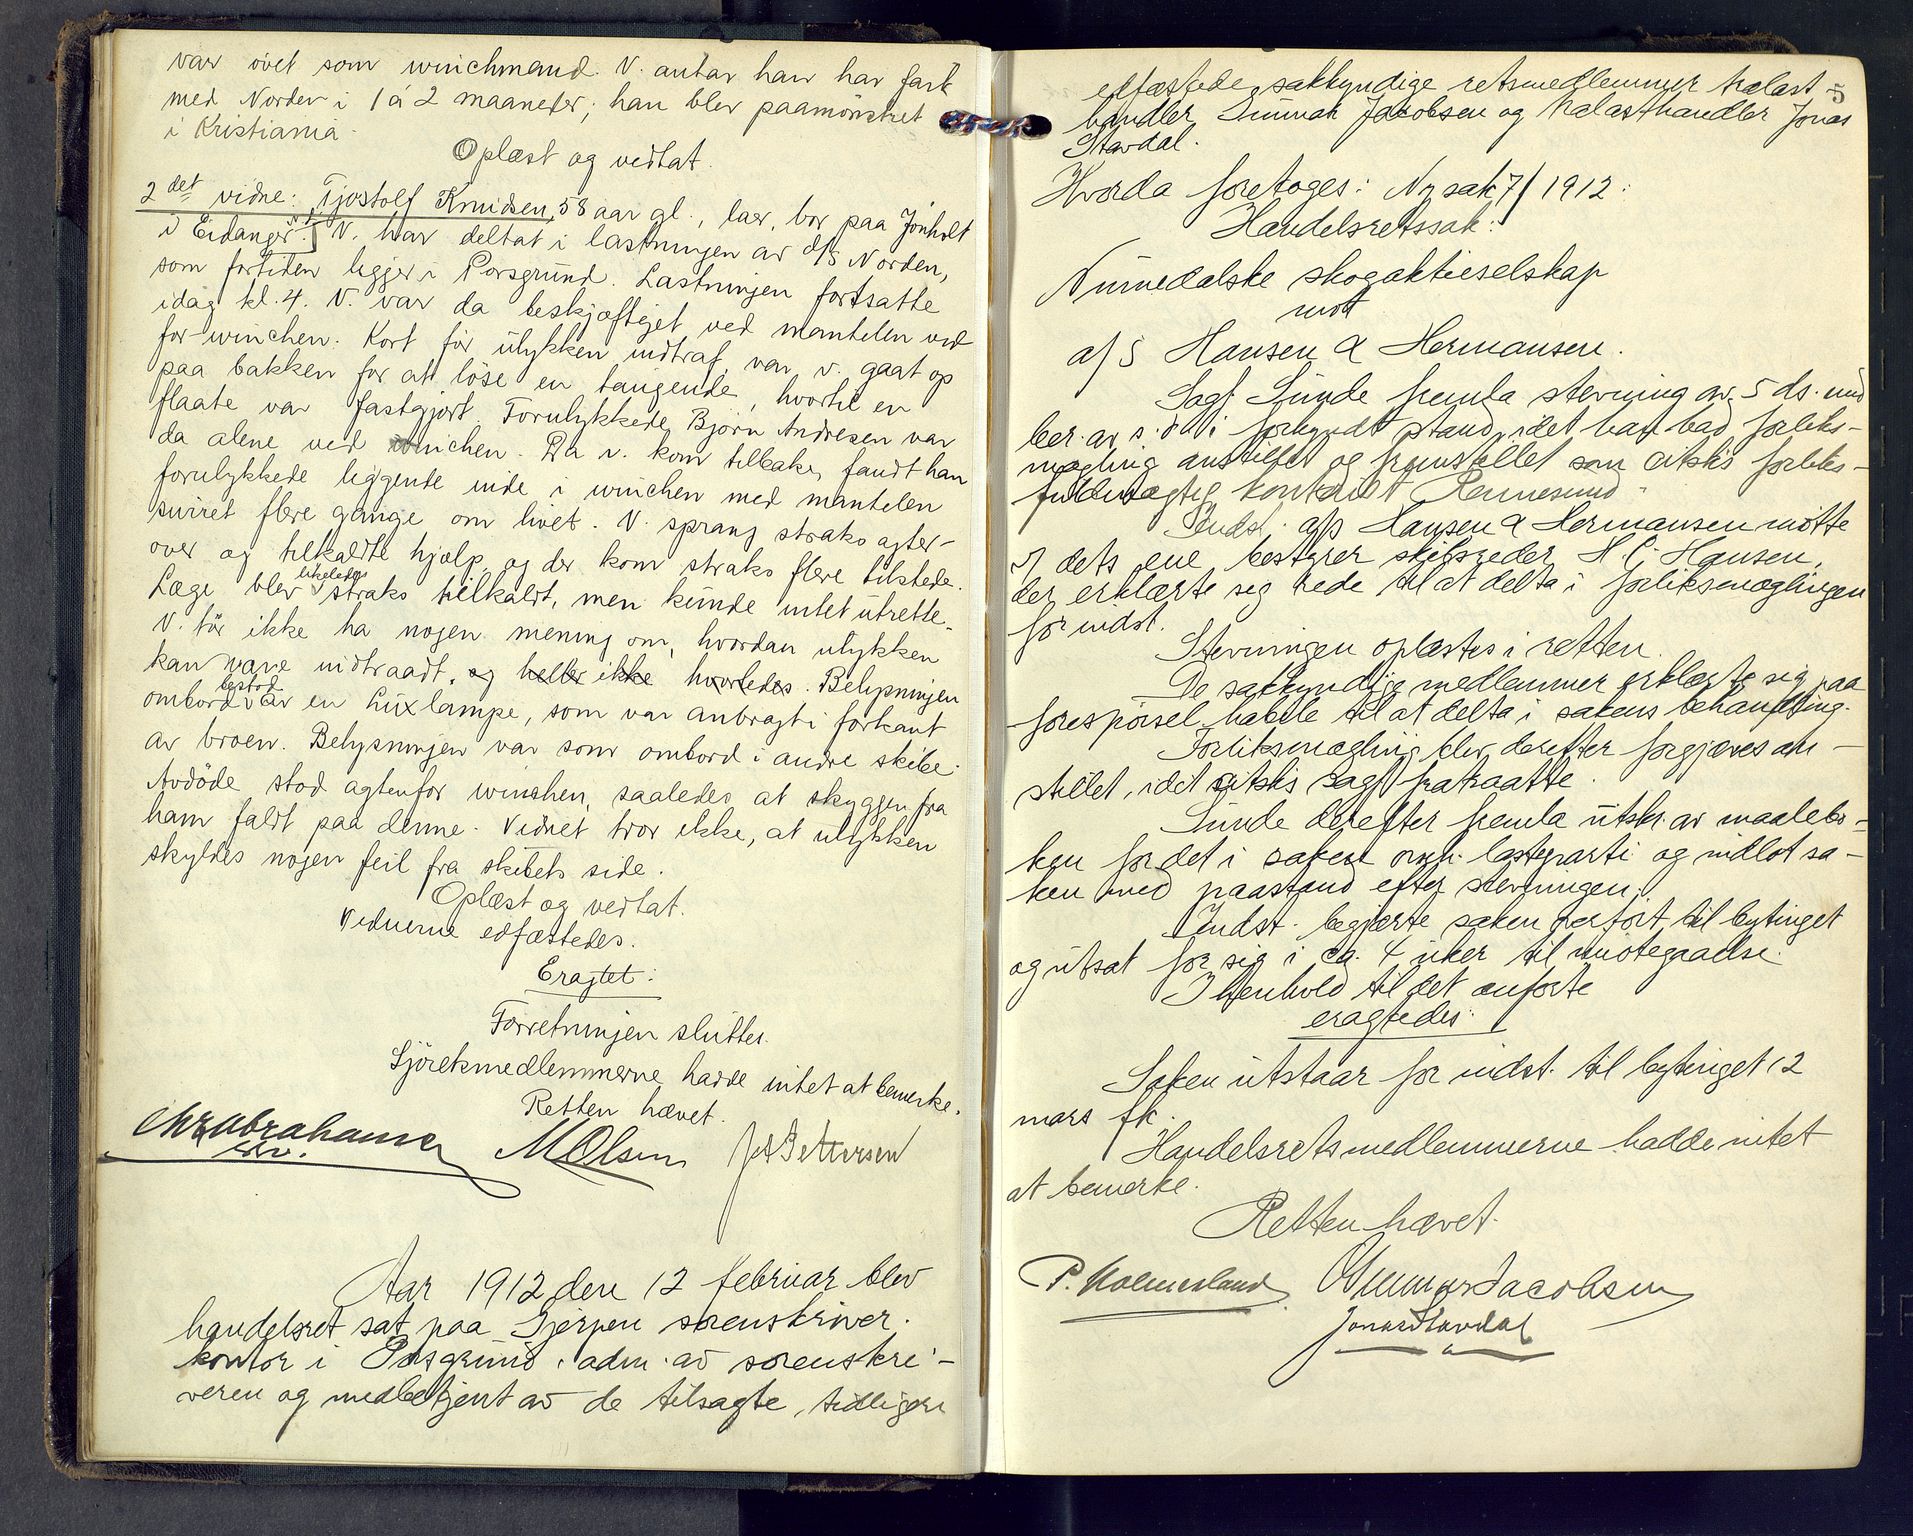 var övet som winchmand. V. antar han har fart
med Norden i 1 à 2 maaneder; han blev paamönstret
i Kristiania.
Oplæst og vedtat.
2det vidne: Tjostolf Knudsen, 58 aar gl., bor paa Jönholt
i Eidanger. V. har deltat i lastningen av d/s Norden,
som fortiden ligger i Porsgrund. Lastningen fortsatte
idag kl. 4. V. var da beskjæftiget ved mantelen ved
for-winchen. Kort för ulykken indtraf, var v. gaat op
paa bakken for at löse en tangende, hvortil en
flaate var fastgjort. Forulykkede Björn Andresen var
da alene ved winchen. Da v. kom tilbake, fandt han
forulykkede liggende inde i winchen med mantelen
surret flere gange om livet. V. sprang straks agter-
over og tilkaldte hjælp, og der kom straks flere tilstede.
Læge blev likeledes straks tilkaldt, men kunde intet utrette.
V. tör ikke ha nogen mening om, hvordan ulykken
kan være indtraadt, og heller ikke hvorledes. Belysningen
ombord bestod var en Luxlampe, som var anbragt i forkant
av broen. Belysningen var som ombord i andre skibe.
Avdöde stod agtenfor winchen, saaledes at skyggen fra
ham faldt paa denne. Vidnet tror ikke, at ulykken
skyldes nogen feil fra skibets side.
Oplæst og vedtat.
Vidnerne edfæstedes.
Eragtet:
Forretningen slutter.
Sjöretsmedlemmerne havde intet at bemerke.
Retten hævet.
Chr Abrahamsen M Olsen J A Pettersen
Aar 1912 den 12 februar blev
handelsret sat paa Gjerpen sorenskriver-
kontor i Porsgrund, adm. av sorenskri-
veren og medbetjent av de tilsagte, tidligere
5
edfæstede sakkyndige retsmedlemmer trælast-
handler Gunnar Jacobsen og trælasthandler Jonas
Stavdal.
Hvorda foretoges: Ny sak 7/1912:
Handelsretssak:
Numedalske skogaktieselskap
mot
a/s Hansen & Hermansen.
Sagf. Sunde fremla stevning av 5 ds. med
ber. av s. d. i forkyndt stand, idet han bad forliks-
mægling anstillet og fremstillet som citsk's forliks-
fuldmægtig kontorist Rennesund.
Indst. a/s Hansen & Hermansen mötte
v/ dets ene bestyrer skibsreder H. C. Hansen,
der erklærte sig rede til at delta i forliksmæglingen
for indst.
Stevningen oplæstes i retten.
De sakkyndige medlemmer erklærte sig paa
forespörsel habile til at delta i sakens behandling.
Forliksmægling blev derefter forgjæves an-
stillet, idet citsk's sagf. fratraatte.
Sunde derefter fremla utskr. av maalebo-
ken for det i saken omh. lasteparti og indlot sa-
ken med paastand efter stevningen.
Indst. begjærte saken overfört til bytinget
og utsat for sig i ca. 4 uker til imötegaaelse.
I henhold til det anförte
eragtedes:
Saken utstaar for indst. til bytinget 12
mars fk.
Handelsretsmedlemmerne hadde intet
at bemerke.
Retten hævet.
P. Holmesland Gunnar Jacobsen
Jonas Stavdal